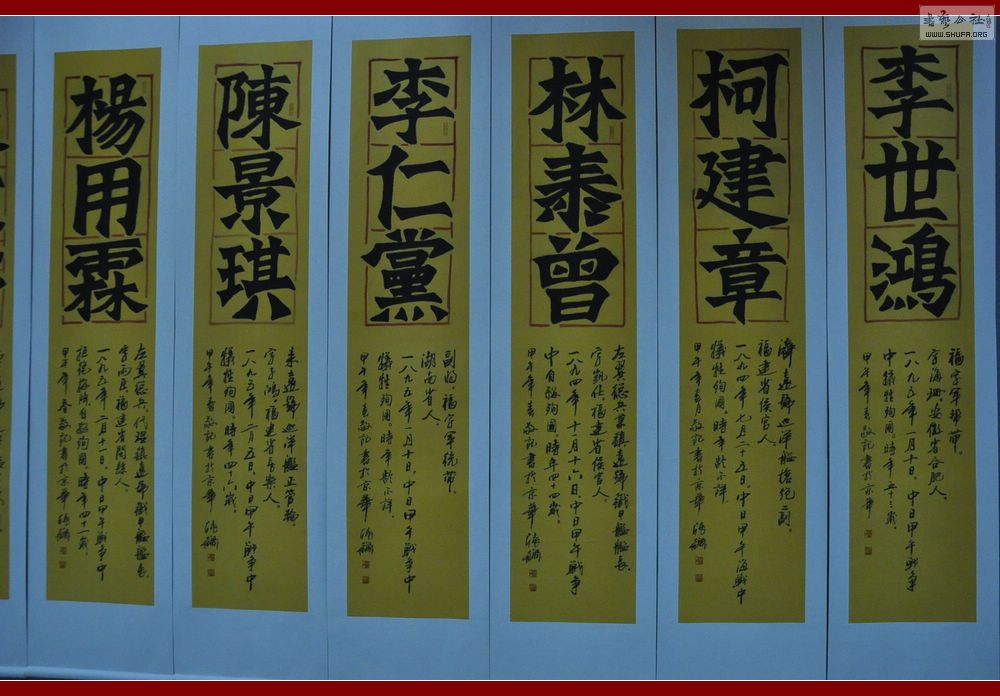 書藝公社
WWW.SHUFA.ORG
李世鴻
福字軍幫帶。
字海珊。安徽省合肥人。
一八九五年一月十日。中日甲午戰爭
中犧牲殉國。時年五十三歲
甲午年春敬記書於京華
柯建章
濟遠號巡洋艦槍砲二副。
福建省侯官人。
一八九四年七月二十五日。中日甲午海戰中
犧牲殉國。時年齡不詳
甲午年春月敬記書於京華
林泰曾
左翼總兵兼鎮遠號鐵甲艦艦長。
字凱仕。福建省侯官人。
一八九四年十一月十六日。中日甲午戰爭
中自殺殉國。時年四十四歲
甲午年春敬記書於京華
李仁黨
副將。福字軍統帶。
湖南省人。
一八九五年一月十日。中日甲午戰爭中
犧牲殉國。時年齡不詳。
甲午年春敬記書於京華
陳景琪
來遠號巡洋艦正管輪
字子鴻。福建省樂人。
一八九五年二月五日。中日甲午戰爭中
犧牲殉國。時年四十六歲。
甲午年春敬記書於京華
楊用霖
左翼總兵。代理鎮遠號鐵甲艦艦長。
字雨臣。福建省閩縣人。
一八九五年二月十一日。中日甲午戰爭中
拒絕自殺殉國。時年四十二歲。
甲午年春敬記書於京華